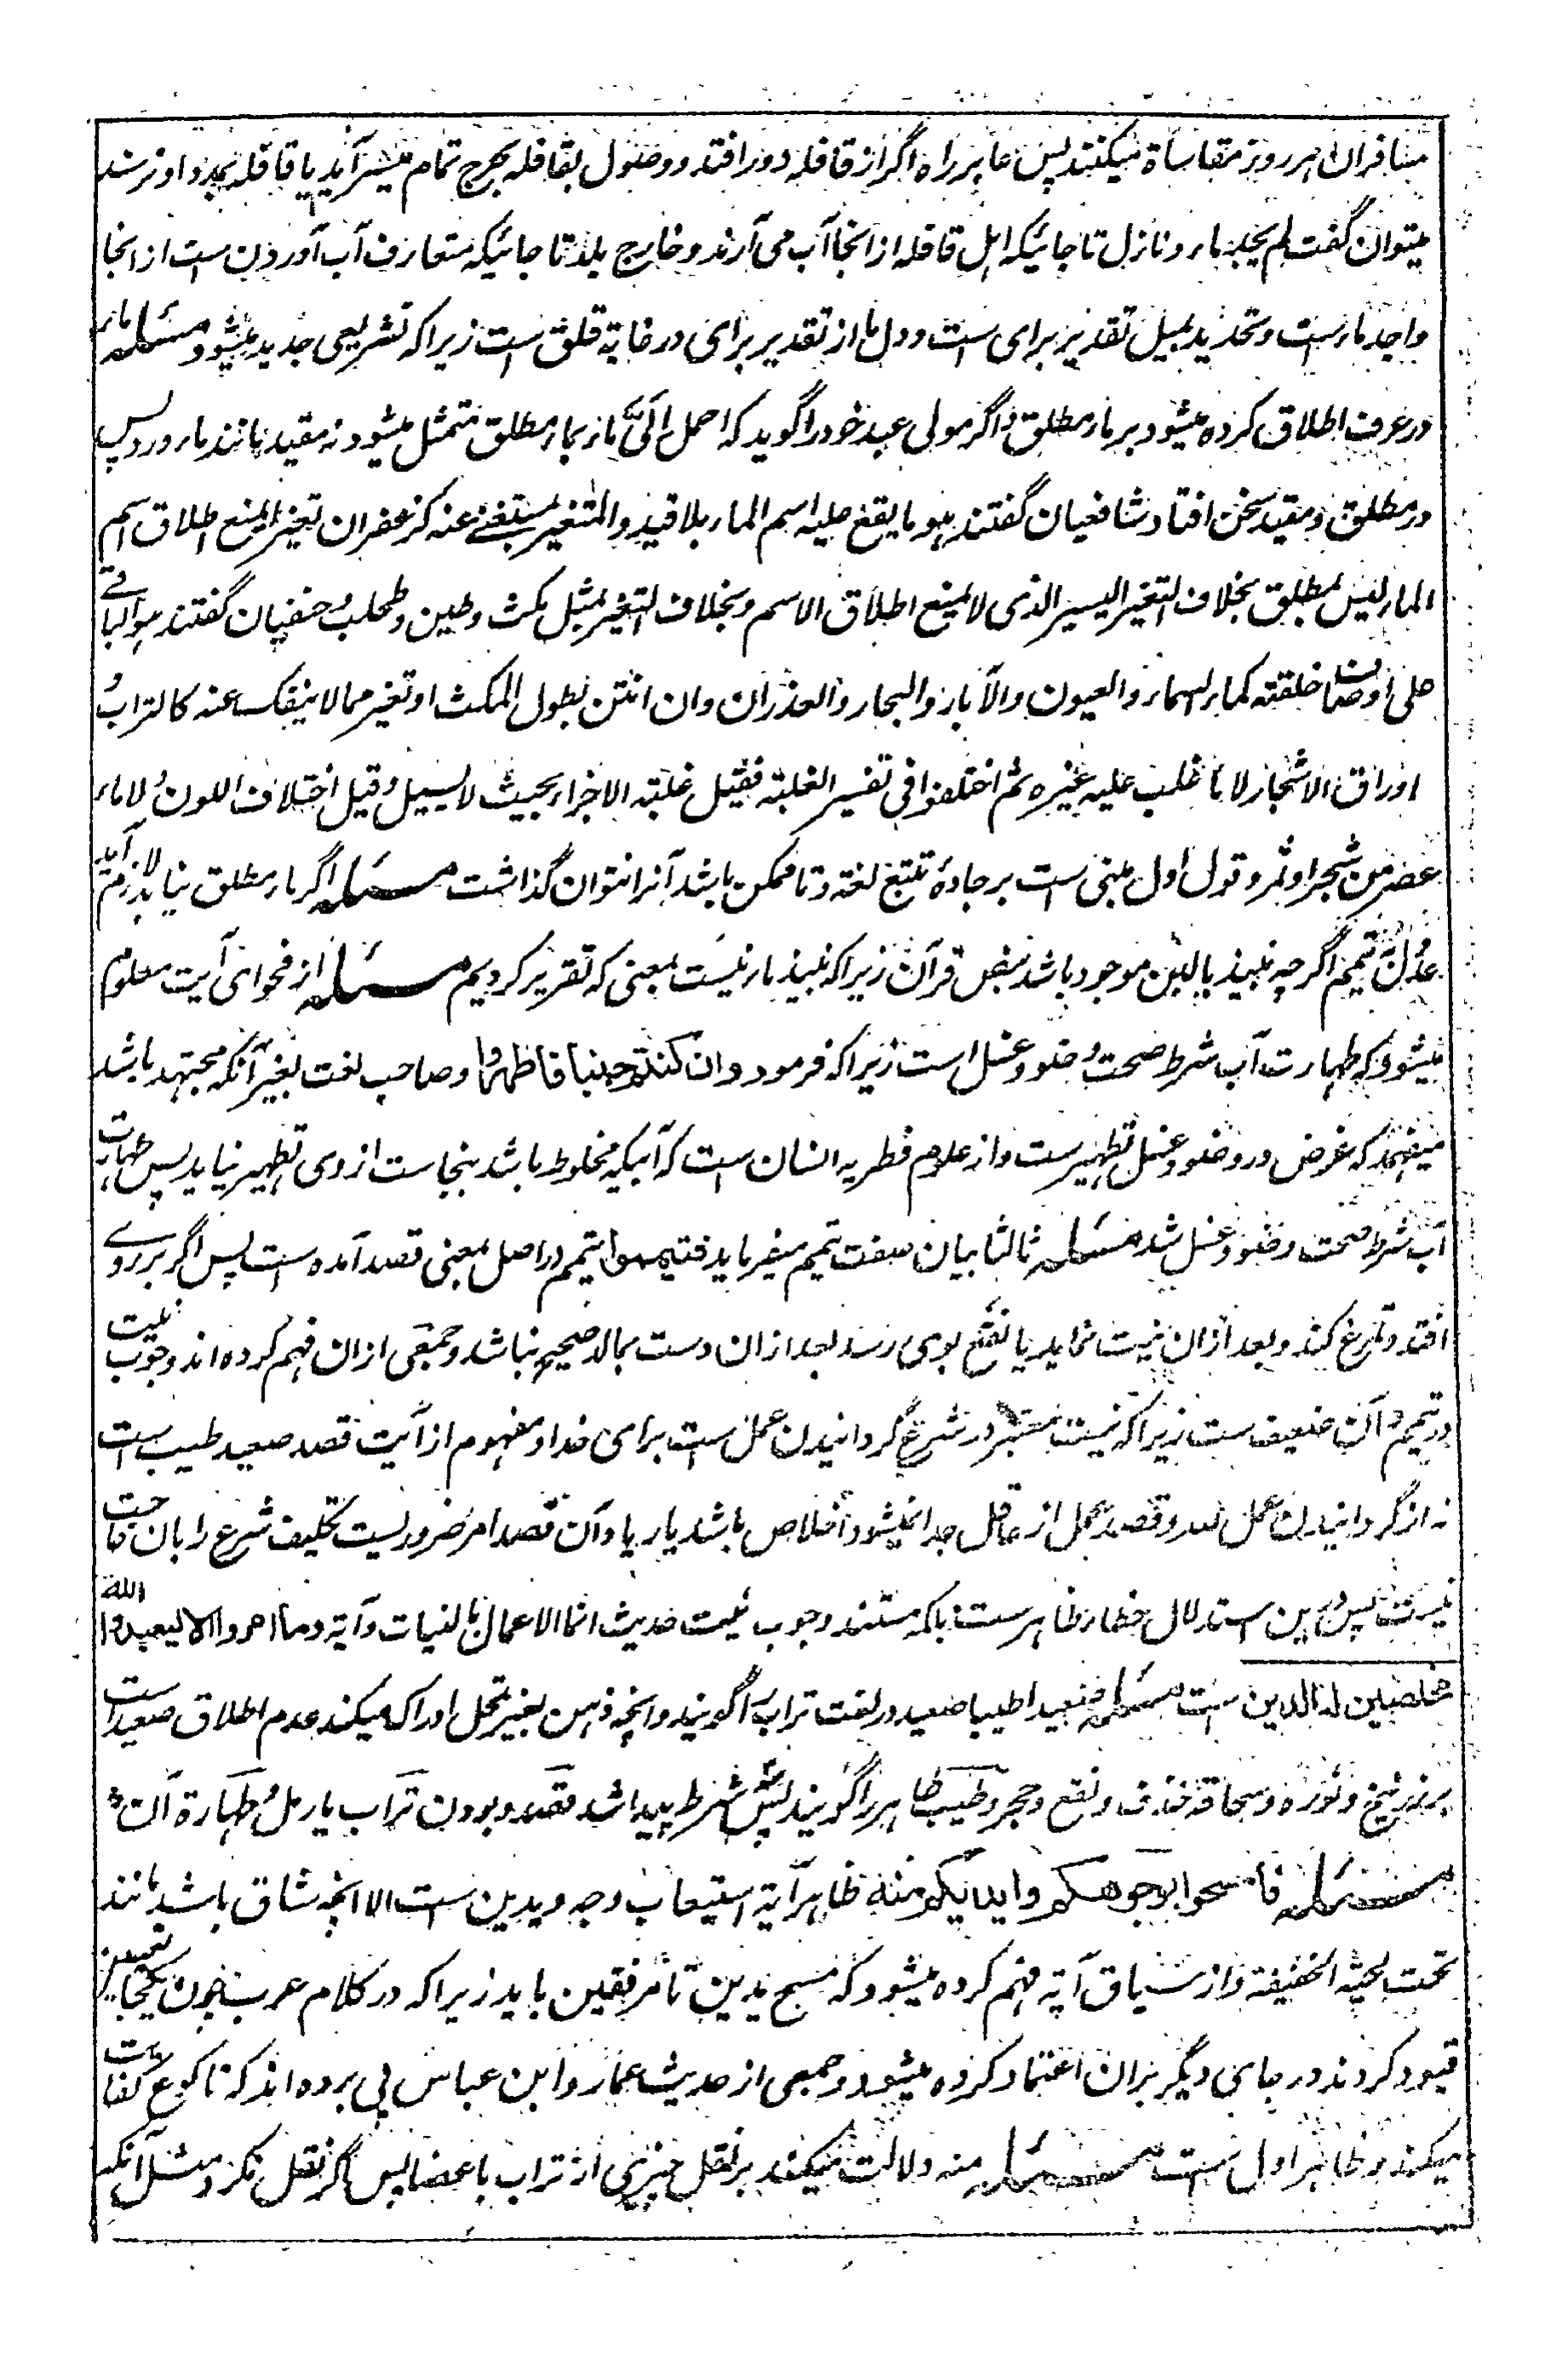 مسافران هر روز مقاساة میکنند پس عابر راه اگر از قافله دور افتد و وصول بقافله بحرج تمام میسر آید یا قافله بمدد او نرسد
میتوان گفت لم یجد ماء و نازل تا جائیکه اهل قافله از انجا آب می آرند و خارج بلد تا جائیکه متعارف آب آوردن ست از انجا
واجد ماء ست و تحدید بمیل تقدیر برای ست و دل ما از تقدیر برای در غایة قلق ست زیرا که تشریعی جدید میشود مسئله ماء
در عرف اطلاق کرده میشود بر ماء مطلق و اگر مولی عبد خود را گوید که احمل الیّ ماء بماء مطلق متمثل میشود نه مقید مانند ماء ورد پس
در مطلق و مقید سخن افتاد شافعیان گفتند هو ما یقع علیه اسم الماء بلا قید و المتغیر بمستغنی عنه کزعفران تغیرا یمنع اطلاق اسم
الماء لیس بمطلق بخلاف التغیر الیسیر الذی لا یمنع اطلاق الاسم و بخلاف التغیر بمثل مکث و طین و طحلب و حنفیان گفتند هو الباقی
علی اوصاف خلقته کماء السماء و العیون و الآبار و البحار و الغدران و ان انتن بطول المکث او تغیر مما لا ینفک عنه کالتراب و
اوراق الاشجار لا ما غلب علیه غیره ثم اختلفوا فی تفسیر الغلبة فقیل غلبة الاجزاء بحیث لا یسیل و قیل اختلاف اللون و لا ماء
عصر من شجر او ثمر و قول اول مبنی ست بر جادۀ تتبع لغة و تا ممکن باشد آنرا نتوان گذاشت مسئله اگر ماء مطلق نیابد لازم آید
عدل تیمم اگر چه نبیذ یا لبن موجود باشد بنص قرآن زیرا که نبیذ ماء نیست بمعنی که تقریر کردیم مسئله از فحوای آیت معلوم
میشود که طهارت آب شرط صحت وضو و غسل است زیرا که فرمود و ان کنتم جنبا فاطهروا و صاحب لغت بغیر آنکه مجتهد باشد
میفهمد که غرض در وضو و غسل تطهیر ست و از علوم فطریه انسان ست که آبیکه مخلوط باشد بنجاست از وی تطهیر نیاید پس طهارت
آب شرط صحت وضو و غسل شد مسئله ثالثا بیان صفت تیمم میفرماید فتیمموا تیمم در اصل بمعنی قصد آمده ست پس اگر بر روی
افتد و تمرغ کند و بعد ازان نیت نماید یا نقع بوی رسد بعد ازان دست بمالد صحیح نباشد و جمعی ازان فهم کرده اند وجوب نیت
در تیمم و آن ضعیف ست زیرا که نیت معتبر در شرع گردانیدن عمل ست برای خدا و مفهوم از آیت قصد صعید طیب ست
نه از گردانیدن عمل لله و قصد عمل از عاقل جدا نمیشود اخلاص باشد یا ریا و آن قصد امر ضروریست تکلیف شرع را بان حاجت
نیست پس درین استدلال خطاء ظاهر ست بلکه مستند وجوب نیت حدیث انما الاعمال بالنیات و آیة وما امروا الا لیعبدوا الله
مخلصین له الدین ست مسئله صعیدا طیبا صعید در لغت تراب را گویند و آنچه ذهن بغیر تمحل ادراک میکند عدم اطلاق صعید است
بر زرنیخ و نوره و سحاقه خذف و نقع و حجر و طیب طاهر را گویند پس شش شرط پیدا شد قصد و بودن تراب یا رمل و طهارة آن و
مسئله فامسحوا بوجوهکم وایدیکم منه ظاهر آیة استیعاب وجه و یدین ست الا آنچه شاق باشد مانند
تحت لحیة الخفیفة و از سیاق آیة فهم کرده میشود که مسح یدین تا مرفقین باید زیرا که در کلام عرب چون یکجا تعیین
قیود کردند در جای دیگر بران اعتماد کرده میشود و جمعی از حدیث عمار و ابن عباس پی برده اند که تا کوع کفایت
میکند و ظاهر اول ست مسئله منه دلالت میکند بر نقل چیزی از تراب باعضا پس اگر نقل نکرد مثل آنکه